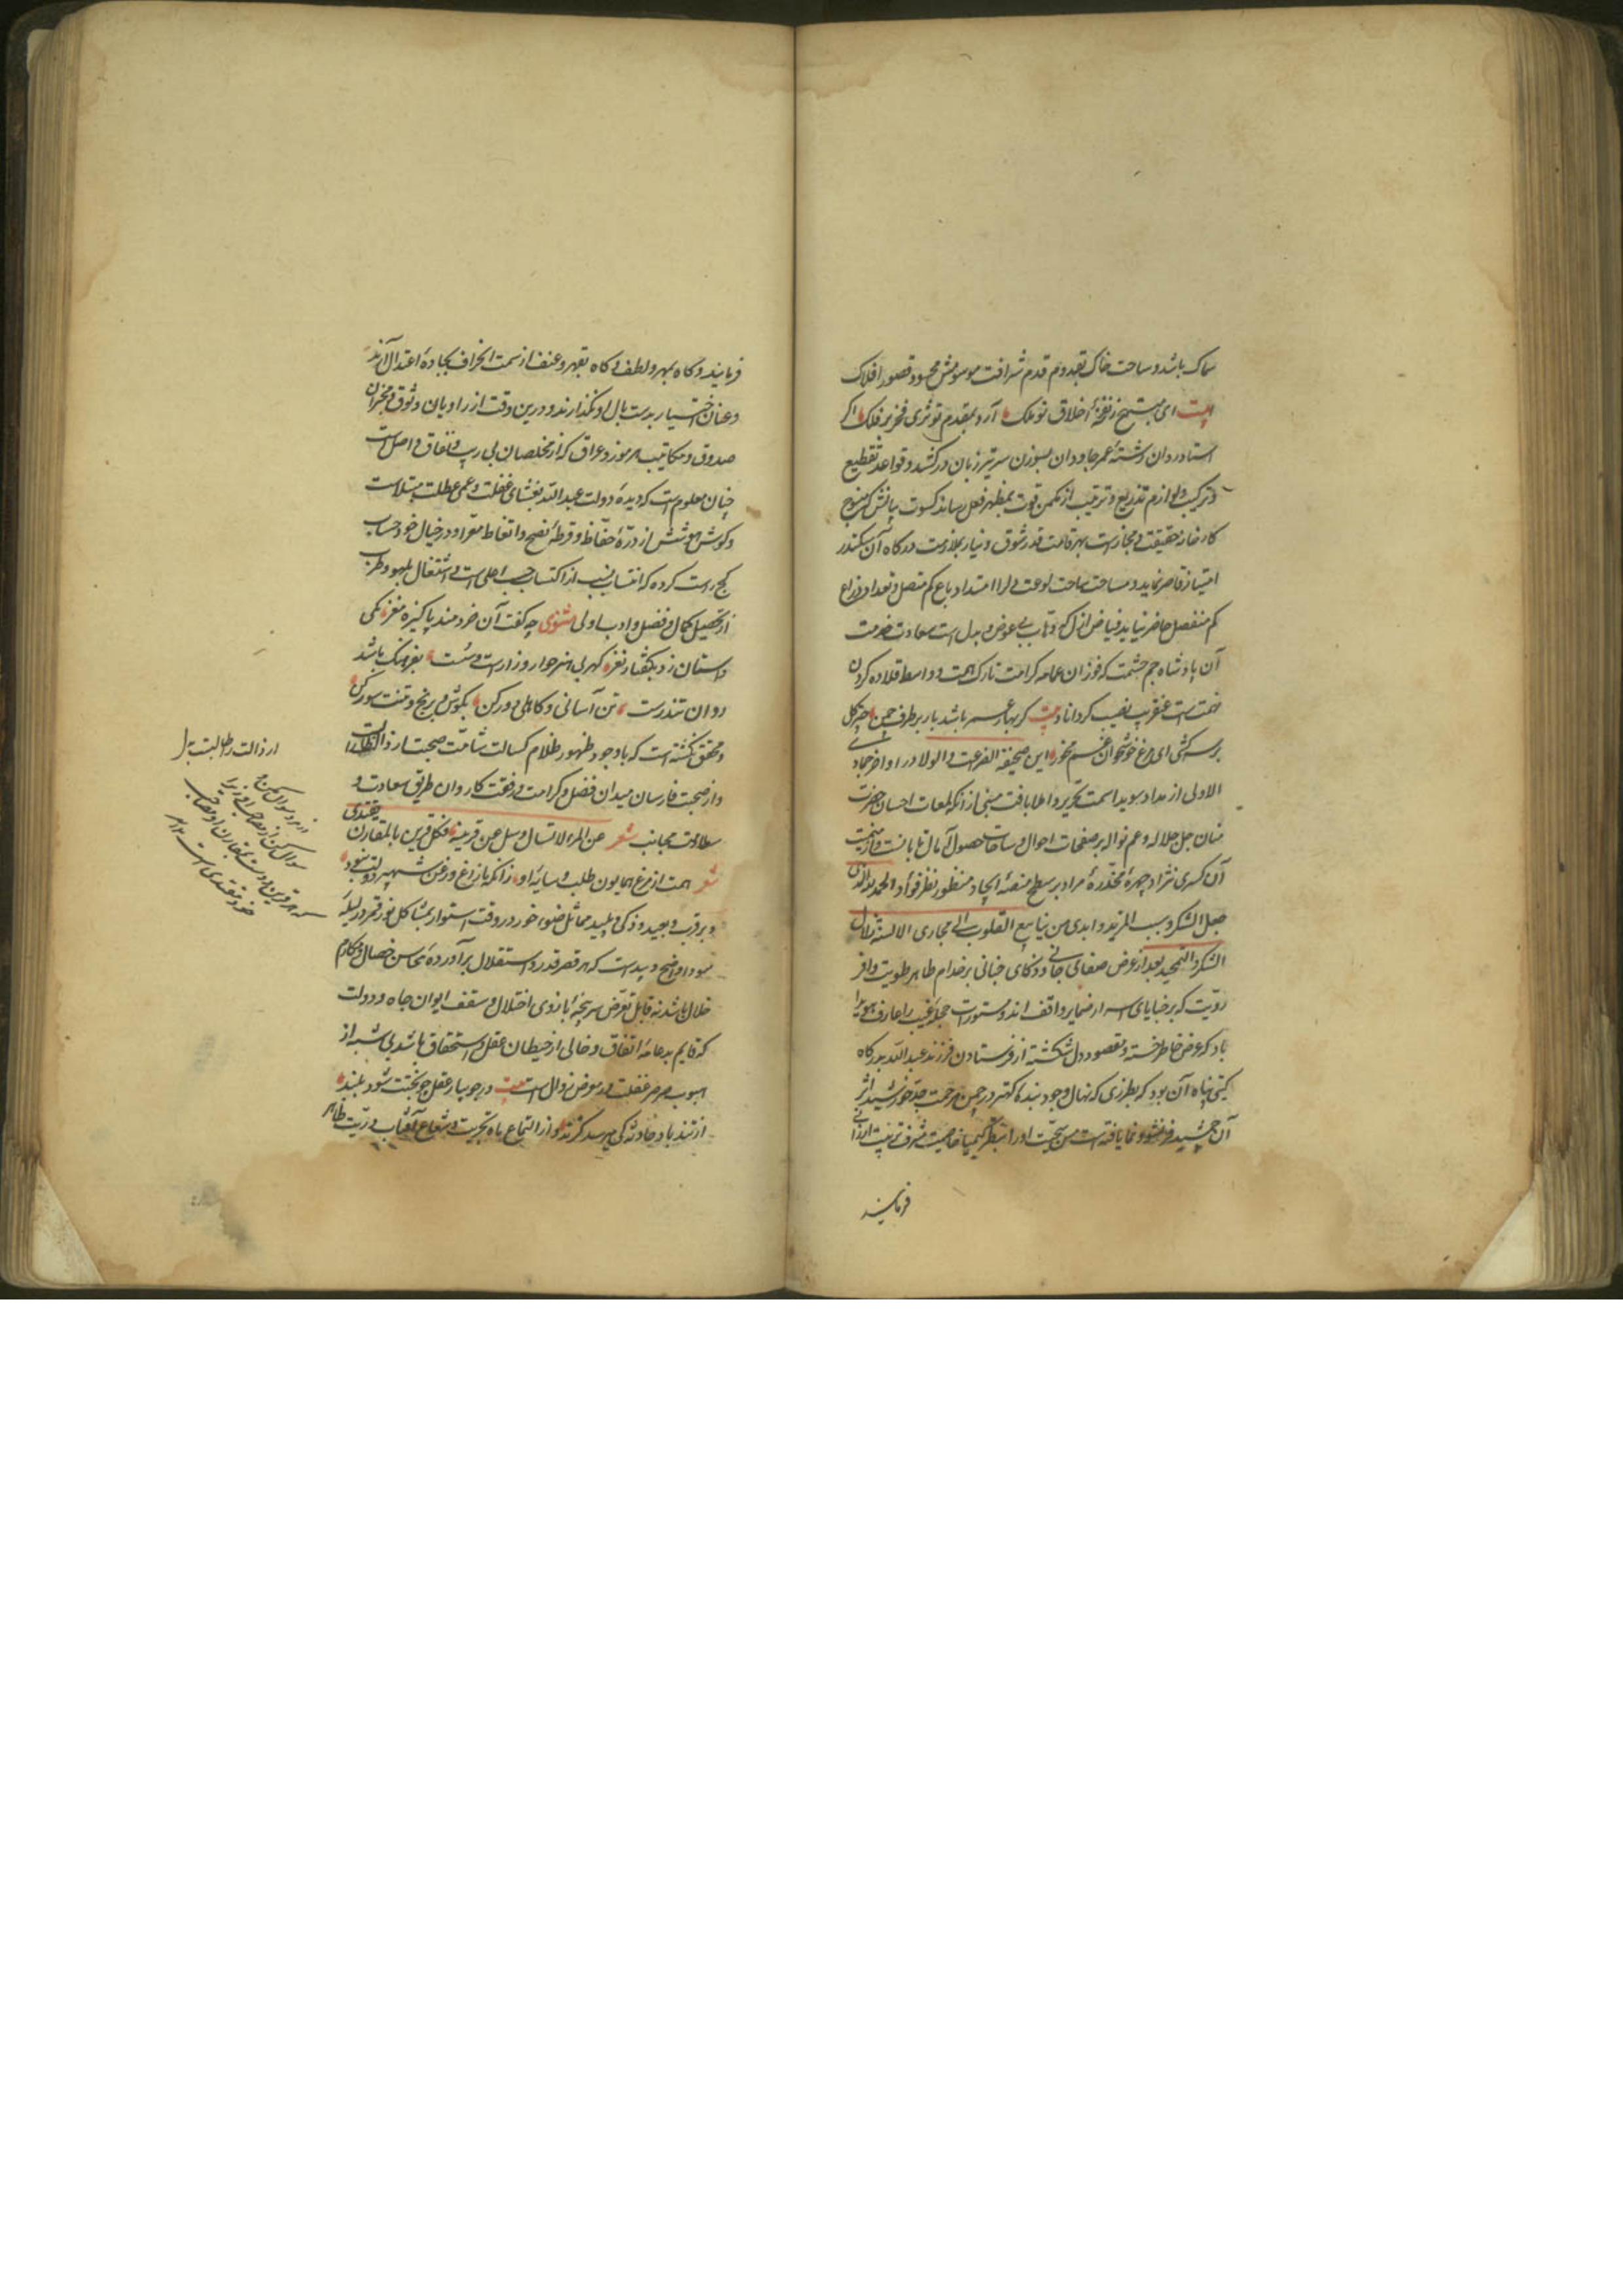 سماک باشد و ساحت خاک بقدوم قدم شرافت موسومش محسود قصور افلاک
بیت ای مبتهج ز نفخهٔ اخلاق تو ملک آرد بمقدم تو ثری فخر بر فلک اگر
استاد روان رشتهٔ عمر جاودان بسوزن سر تیز زبان درکشد و قواعد تقطیع
و ترکیب و لوازم تدریع و ترتیب از مکمن قوت بمظهر فعل رساند کسوت
کارخانهٔ حقیقت و مجاز است بهر قامت قدر شوق و نیاز بملازمت درگاه آن سکندر
امتیاز قاصر نماید و مساحت ساحت لوعت دل را امتداد باع کم متصل و تعداد ذراع
کم منفصل حاضر نیاید فیاض ازل که وهاب بی عوض و بدل است سعادت خدمت
آن پادشاه جم حشمت که فوز آن عمامه کرامت تارک همت و واسطهٔ قلادهٔ گردن
نهمت است عنقریب نصیب گرداناد بیت گر بهار عمر باشد باز بر طرف چمن چتر گل
بر سر کشی ای مرغ خوشخوان غم مخور این صحیفة الضراعت و الولا در اواخر جماد
الاولی از مداد سویدا سمت تحریر و املا یافت مبنی از آنکه لمعات احسان حضرت
منان جل جلاله و عم نواله بر صفحات احوال و ساحات حصول آمال تابانست و از میمنت
آن کسری نژاد چهرهٔ مخدرهٔ مراد بر سطح منصهٔ ایجاد منظور نظر فؤاد الحمد لله الذی
جعل الشکر سبب المزید و ابدی من ینابیع القلوب الی مجاری الالسنة زلال
الشکر و التمحید بعد از عرض صفای جانی و ذکای جنانی بر خدام طاهر طویت وافر
رویت که بر خبایای اسرار ضمایر واقف اند و مستورات حجلهٔ غیب را عارف هویدا
باد که غرض خاطر خسته و مقصود دل شکسته از فرستادن فرزند عبدالله بدرگاه
گیتی پناه آن بود که بطرزی که نهال وجود بندهٔ کمتر در چمن مرحمت جد خورشید اثر
آن جمشید فر نشو و نما یافته است مس سجیت او را بنظر کیمیا خاصیت شرف تربیت ارزانی
فرمایند
فرمایند و گاه بمهر و لطف و گاه بقهر و عنف از سمت انحراف بجادهٔ اعتدال آرند
و عنان اختیار بدست بال او نگذارند و درین وقت از راویان وثوق و مخبران
صدوق و مکاتیب هرموز و عراق که از مخلصان بی ریب و نفاق واصل است
چنان معلوم است که دیدهٔ دولت عبدالله بغشای غفلت و عمی عطلت مبتلاست
و گوش هوشش از درهٔ حفاظ و قرطهٔ نصح و اتعاظ معرا و در خیال خود حساب
کج راست کرده که انتساب نسب از اکتساب حسب اعلی است و اشتغال بلهو و طرب
از تحصیل کمال و فضل و ادب اولی مثنوی چه گفت آن خردمند پاکیزه مغز یکی
داستان زد بگفتار نغز گهر بی هنر خوار و زارست و سست بفرهنگ باشد
روان تندرست تن آسانی و کاهلی دور کن بکوش و برنج و تنت سور کن
و محقق نگشته است که با وجود ظهور ظلام کسالت شآمت صحبت ارذالت
و از صحبت فارسان میدان فضل و کرامت و رفقت کاروان طریق سعادت و
سلامت مجانب شعر عن المرء لا تسأل و سل عن قرینه فکل قرین بالمقارن یقتدی
شعر همت از مرغ همایون طلب و سایهٔ او زانکه با زاغ و زغن شهپر دولت نبود
و بر قریب و بعید و ذکی و بلید مماثل ضوء خور در وقت استوا و مشاکل نور قمر در لیلهٔ
سودا واضح و پیداست که هر قصر قدر و استقلال برآوردهٔ محاسن خصال و مکارم
خلال باشد نه قابل تعرض سرپنجهٔ بازوی اختلال و سقف ایوان جاه و دولت
که قایم بدعامهٔ اتفاق و خالی از حیطان عقل و استحقاق باشد بی شبه از
هبوب صرصر غفلت در معرض زوال است بیت در جویبار عقل چو بختت شود بلند
از تندباد حادثه کی میرسد گزند و از التماع ماه تجربت و شعاع آفتاب درّیت ظاهر
ارذالت را طالبست
از مرد سوال مکن و
سوال کن از مصاحب او زیرا
که هر قرین و دوست بمقارن و مصاحب
خود مقتدی است ۱۲